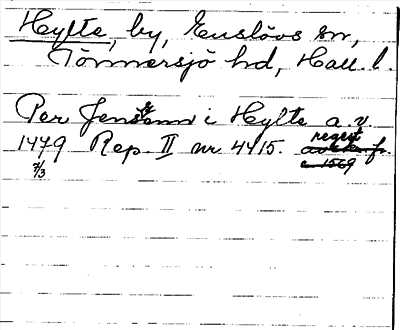 Hylte, by, Enslövs sn,
Tönnersjö hd, Hall. l.
Per Jensson i Hylte a. v.
1479 Rep. II nr 4415. regest
7/3
c 1569